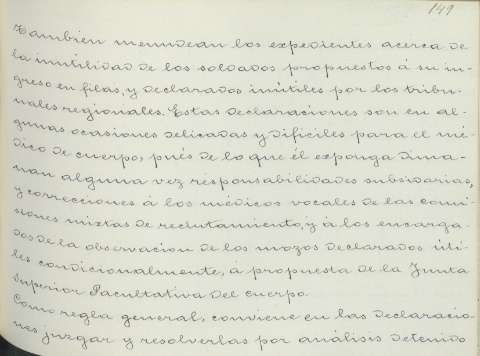 149
También menudean los expedientes acerca de
la inutilidad de los soldados propuestos á su in-
greso en filas, y declarados inútiles por los tribu-
nales regionales. Estas declaraciones son en al-
gunas ocasiones delicadas y dificiles para el mé-
dico de cuerpo, pués de lo que él exponga dima-
nan alguna vez responsabilidades subsidarias,
y correcciones á los médicos vocales de las comi-
siones mixtas de reclutamiento, y á los encarga-
dos de la observacion de los mozos declarados úti-
les condicionalmente, á propuesta de la Junta
Superior Facultativa del cuerpo.
Como regla general, conviene en las declaracio-
nes juzgar y resolverlas por análisis detenido